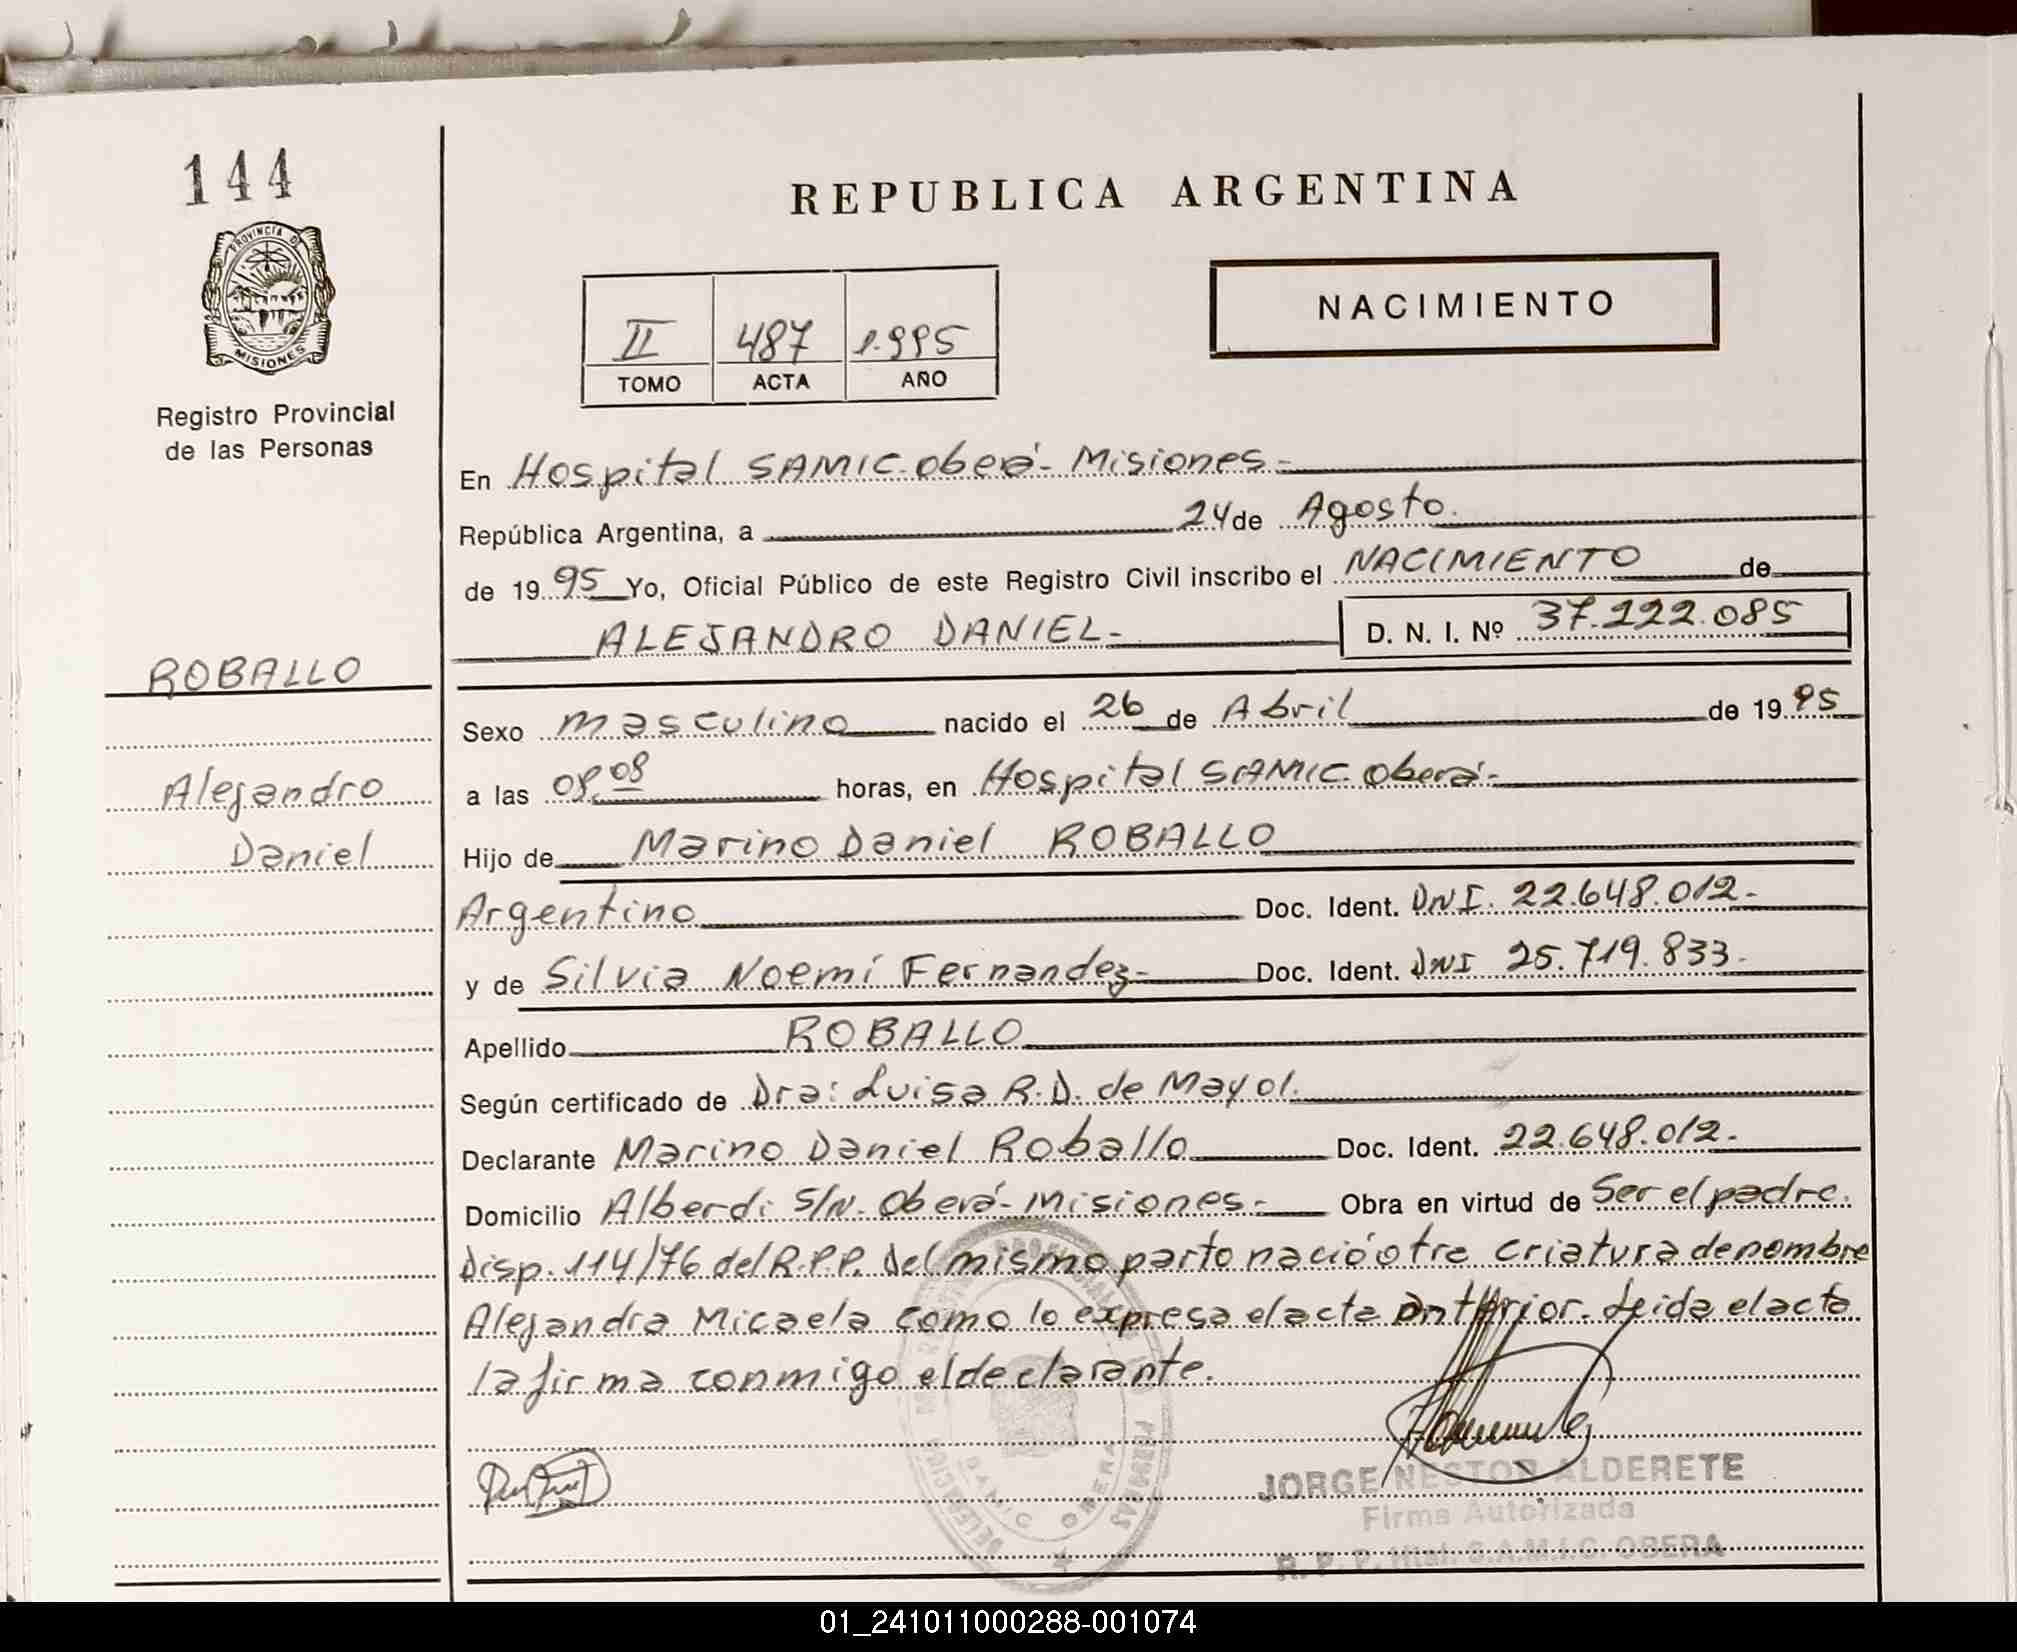 144
REPUBLICA ARGENTINA
PROVINCIA DE
MISIONES
NACIMIENTO
II 487 1.995
TOMO ACTA AÑO
Registro Provincial
de las Personas
En Hospital SAMIC. Oberá - Misiones -
República Argentina, a 24 de Agosto.
de 1995 Yo, Oficial Público de este Registro Civil inscribo el NACIMIENTO de
ALEJANDRO DANIEL - D. N. I. Nº 37.222.085
ROBALLO
Sexo masculino nacido el 26 de Abril de 1995
Alejandro
a las 08.08 horas, en Hospital SAMIC. Oberá -
Daniel
Hijo de Marino Daniel ROBALLO
Argentino Doc. Ident. DNI. 22.648.012 -
y de Silvia Noemí Fernandez - Doc. Ident. DNI 25.719.833 -
Apellido ROBALLO
Según certificado de Dra: Luisa R. D. de Mayol.
Declarante Marino Daniel Roballo Doc. Ident. 22.648.012 -
Domicilio Alberdi S/N. Oberá - Misiones - Obra en virtud de Ser el padre.
Disp. 114/76 del R.P.P. Del mismo parto nació otra criatura de nombre
Alejandra Micaela como lo expresa el acta anterior. Leida el acta
la firma conmigo el declarante.
JORGE NESTOR ALDERETE
Firma Autorizada
R. P. P. Htal. S.A.M.I.C. OBERA
SAMIC OBERA
01_241011000288-001074